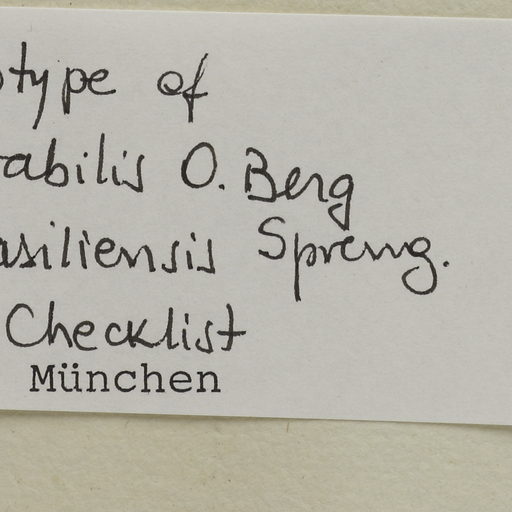 otype of
tabilis O. Berg
asiliensis Spreng.
Checklist
München